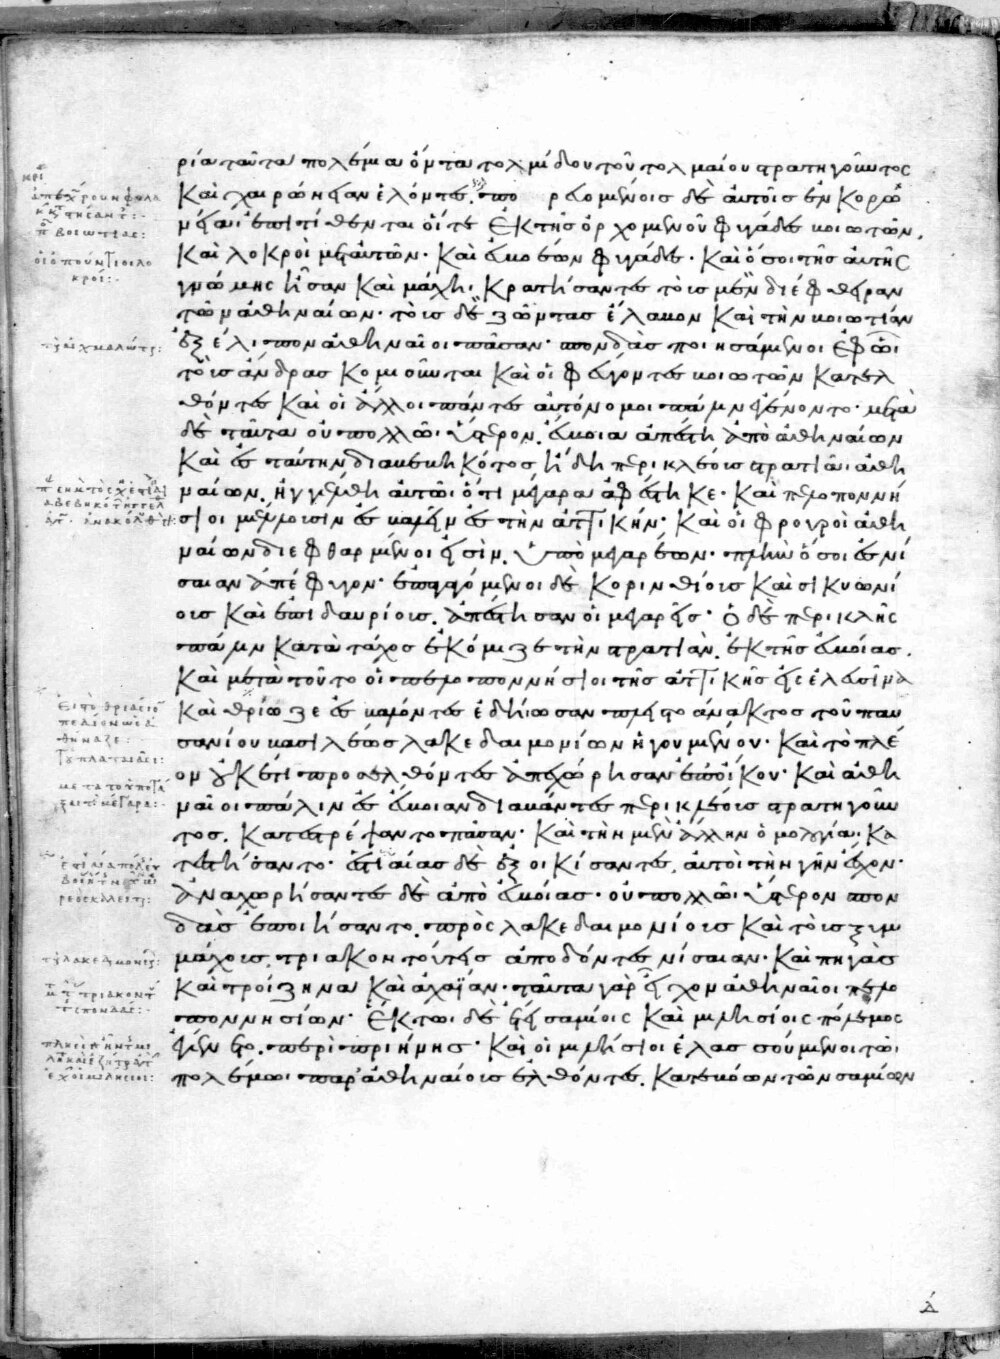 ρία ταῦτα πολέμια ὄντα τολμίδου τοῦ τολμαίου στρατηγοῦντος
καὶ χαιρώνειαν ἑλόντες. πο ρευομένοις δὲ αὐτοῖς ἐν κορω
νείαι ἐπιτίθενται οἵ τε ἐκ τῆς ὀρχομενοῦ φυγάδες βοιωτῶν,
καὶ λοκροὶ μετ αὐτῶν· καὶ εὐβοέων φυγάδες· καὶ ὅσοι τῆς αὐτῆς
γνώμης ἦσαν καὶ μάχηι κρατήσαντες τοὺς μὲν διέφθειραν
τῶν ἀθηναίων· τοὺς δὲ ζῶντας ἔλαβον καὶ τὴν βοιωτίαν
ἐξέλιπον ἀθηναῖοι πᾶσαν· σπονδὰς ποιησάμενοι ἐφ ὧι
τοὺς ἄνδρας κομιοῦνται καὶ οἱ φεύγοντες βοιωτῶν κατελ
θόντες καὶ οἱ ἄλλοι πάντες αὐτόνομοι πάλιν ἐγένοντο· μετὰ
δὲ ταῦτα οὐ πολλῶι ὕστερον. εὔβοια ἀπέστη ἀπὸ ἀθηναίων
καὶ ἐς ταύτην διαβεβηκότος ἤδη περικλέους στρατιᾶι ἀθη
ναίων. ἠγγέλθη αὐτῶι ὅτι μέγαρα ἀφέστηκε· καὶ πελοποννή
σιοι μέλλουσιν ἐσβαλεῖν ἐς τὴν ἀττικήν· καὶ οἱ φρουροὶ ἀθη
ναίων διεφθαρμένοι εἰσὶν. ὑπὸ μεγαρέων· πλὴν ὅσοι ἐς νί
σαιαν ἀπέφυγον· ἐπαγαγόμενοι δὲ κορινθίους καὶ σικυωνί
ους καὶ ἐπιδαυρίους. ἀπέστησαν οἱ μεγαρῆς· ὁ δὲ περικλῆς
πάλιν κατὰ τάχος ἐκόμιζε τὴν στρατιὰν. ἐκ τῆς εὐβοίας.
καὶ μετὰ τοῦτο οἱ πελοποννήσιοι τῆς ἀττικῆς ἐς ἐλευσῖνα
καὶ θριῶζε ἐσβαλόντες ἐδήιωσαν πλειστοάνακτος τοῦ παυ
σανίου βασιλέως λακεδαιμονίων ἡγουμένου· καὶ τὸ πλέ
ον οὐκέτι προσελθόντες ἀπεχώρησαν ἐπ οἴκου· καὶ ἀθη
ναῖοι πάλιν ἐς εὔβοιαν διαβάντες περικλέους στρατηγοῦν
τος. κατεστρέψαντο πᾶσαν· καὶ τὴν μὲν ἄλλην ὁμολογίαι κα
τεστήσαντο· ἑστιαίας δὲ ἐξοικίσαντες, αὐτοὶ τὴν γῆν ἔσχον·
ἀναχωρήσαντες δὲ ἀπὸ εὐβοίας· οὐ πολλῶι ὕστερον σπον
δὰς ἐποιήσαντο. πρὸς λακεδαιμονίους καὶ τοὺς ξυμ
μάχους, τριακοντούτεις ἀποδόντες νίσαιαν· καὶ πηγὰς
καὶ τροίζηνα καὶ ἀχαΐαν· ταῦτα γὰρ εἶχον ἀθηναῖοι πελο
ποννησίων· ἕκτωι δὲ ἔτει σαμίοις καὶ μιλησίοις πόλεμος
ἐγένετο. περὶ πριήνης· καὶ οἱ μιλήσιοι ἐλασσούμενοι τῶι
πολέμωι παρ' ἀθηναίους ἐλθόντες. κατεβόων τῶν σαμίων